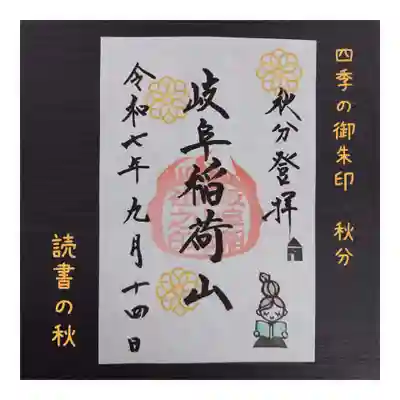 四季の御朱印 秋分
秋分登拝
岐阜稲荷山
令和七年九月十四日
読書の秋